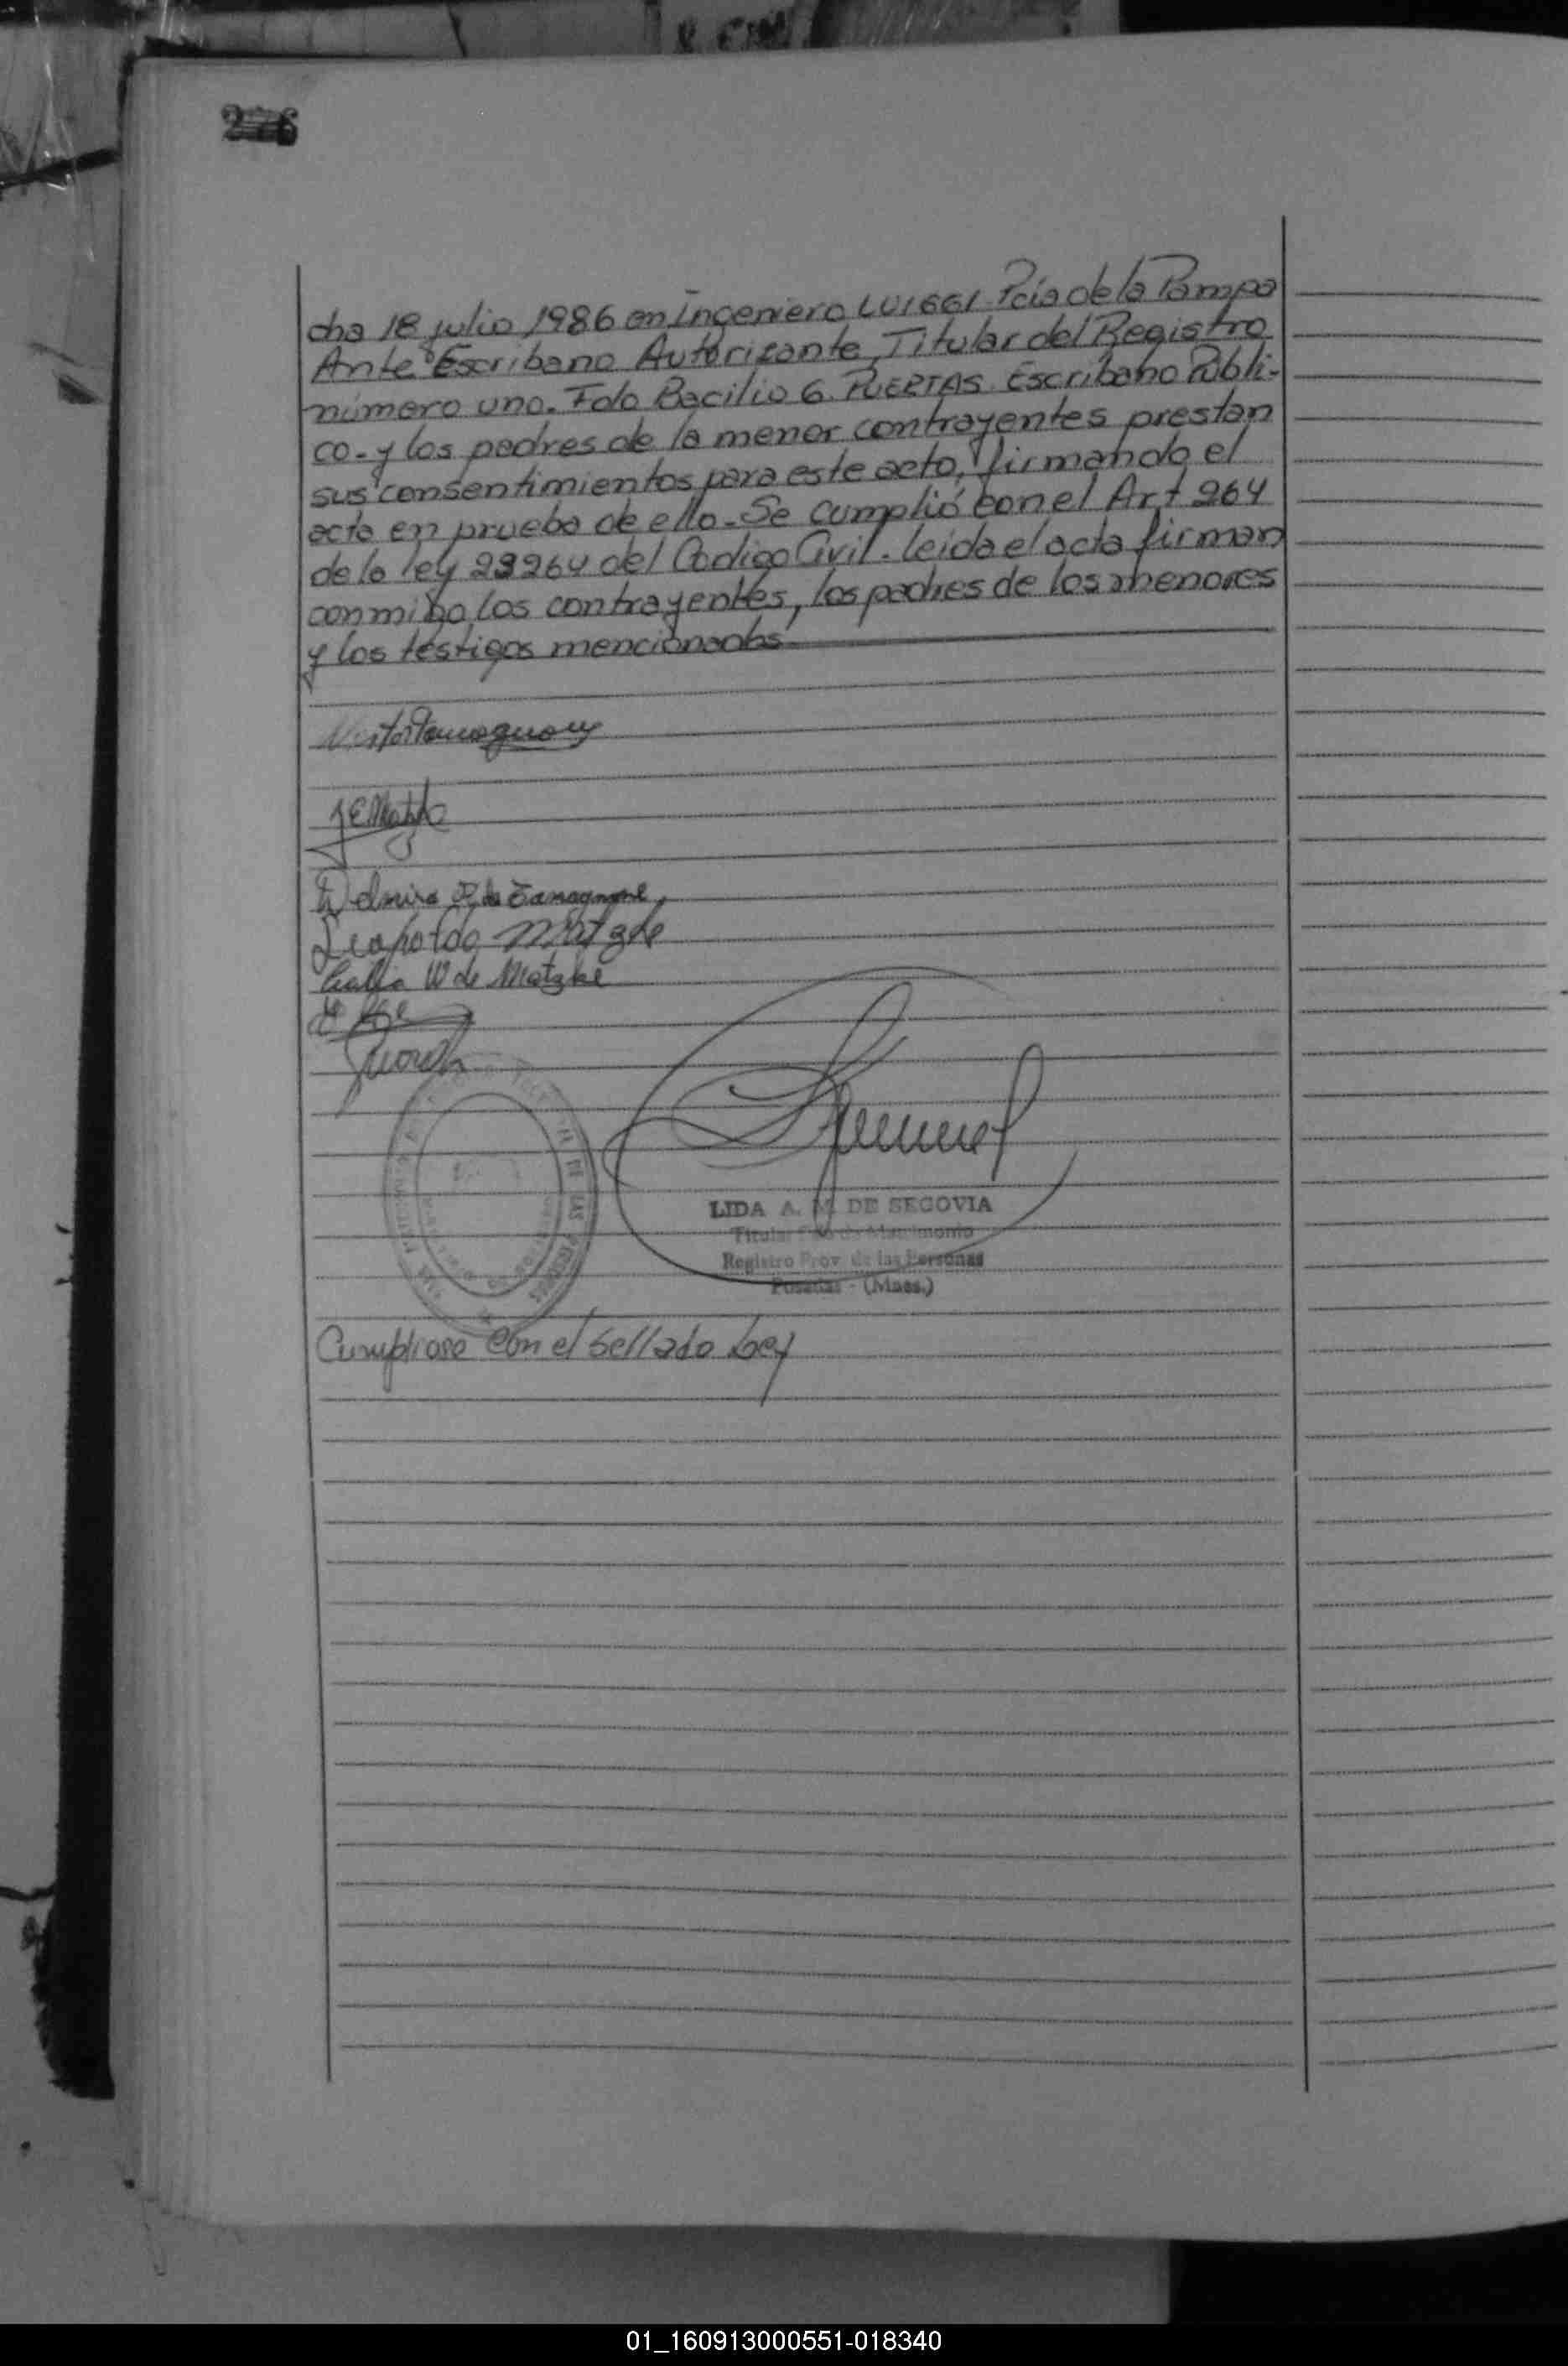 276
cha 18 julio 1986 en Ingeniero LUIGGI. Pcia de la Pampa
Ante Escribano Autorizante, Titular del Registro
número uno. Fdo Bacilio G. PUERTAS. Escribano Públi-
co. y los padres de la menor contrayentes prestan
sus consentimientos para este acto, firmando el
acta en prueba de ello. Se cumplió con el Art 264
de la ley 23264 del Codigo Civil. leida el acta firman
conmigo los contrayentes, los padres de los menores
y los testigos mencionados
Delmira P. de Tamagnone
Leopoldo Matzke
W de Matzke
LIDA A. M. DE SEGOVIA
Titular de Matrimonio
Registro Prov. de las Personas
Posadas - (Mnes.)
DE LAS PERSONAS
Cumpliose con el Sellado Ley
01_160913000551-018340